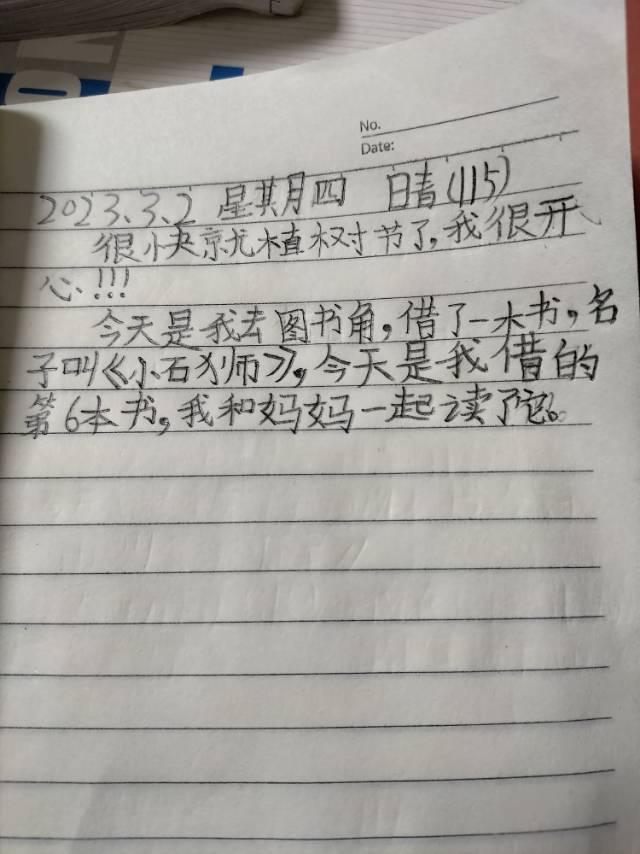 No.
Date:
2023.3.2 星期四 晴(115)
很快就植树节了,我很开
心!!!
今天是我去图书角,借了一本书,名
子叫《小石狮》,今天是我借的
第6本书,我和妈妈一起读了它。